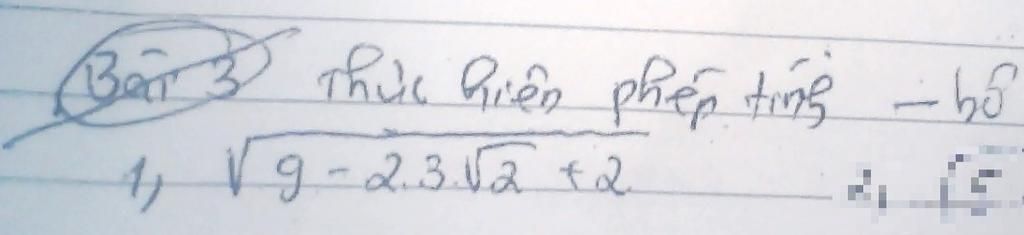 Bài 3 Thực hiện phép tính
1, √(9 - 2.3.√2 + 2)